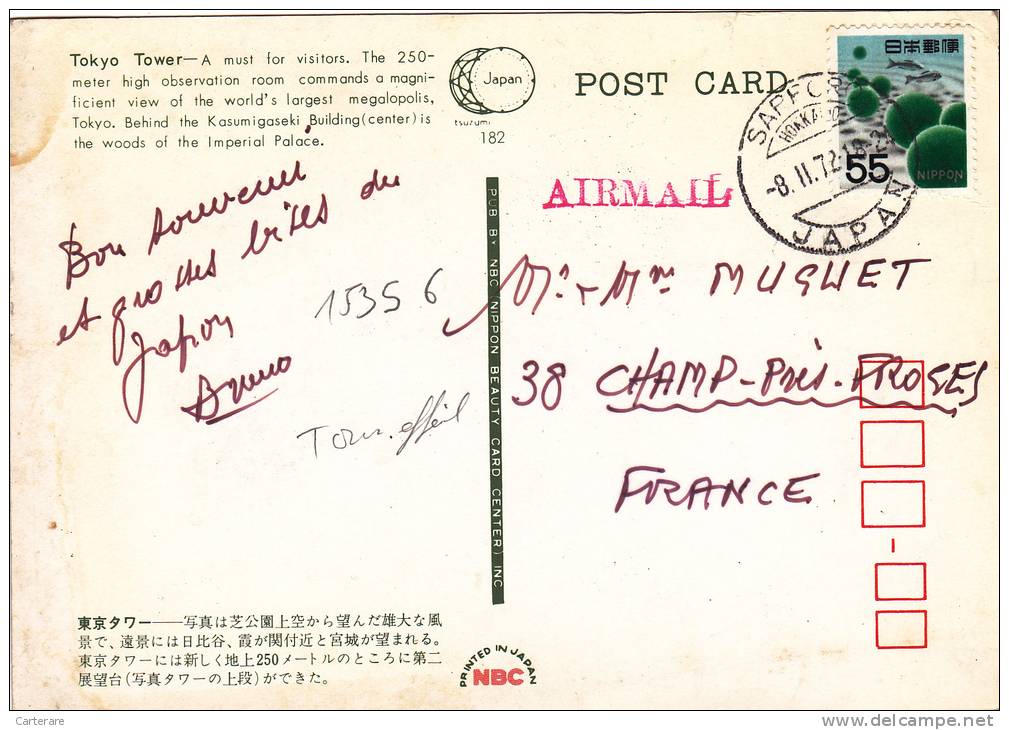 Tokyo Tower—A must for visitors. The 250-
meter high observation room commands a magni-
ficient view of the world's largest megalopolis,
Tokyo. Behind the Kasumigaseki Building(center)is
the woods of the Imperial Palace.
Japan
tsuzumi
182
POST CARD
日本郵便
55
NIPPON
SAPPORO
HOKKAIDO
-8.II.72.18-24
JAPAN
AIRMAIL
Bon souvenir
et grosses bises du
Japon
Bruno
15356
Tour. effeil
PUB BY NBC (NIPPON BEAUTY CARD CENTER) INC
Mr + Mme MUGUET
38 CHAMP-Près-FROGES
FRANCE
東京タワー——写真は芝公園上空から望んだ雄大な風
景で、遠景には日比谷、霞が関付近と宮城が望まれる。
東京タワーには新しく地上250メートルのところに第二
展望台(写真タワーの上段)ができた。
PRINTED IN JAPAN
NBC
Carterare
www.delcampe.net